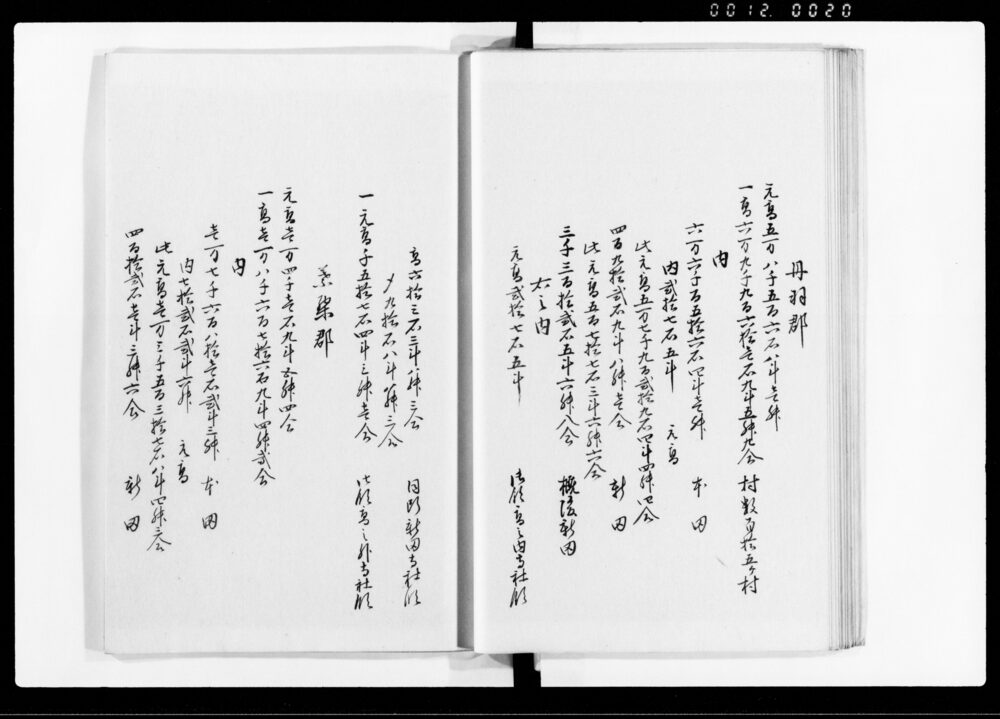 0012. 0020
丹羽郡
元高五万八千五百六石八斗壱升
一高六万九千九百六拾壱石九斗五升九合 村数百拾五ケ村
内
六万六千百五拾六石四斗壱升 本田
内弐拾七石五斗 元高
此元高五万七千九百弐拾九石四斗四升四合
四百九拾弐石九斗八升壱合 新田
此元高五百七拾七石三斗六升六合
三千三百拾弐石五斗六升八合 概後新田
右之内
元高弐拾七石五斗 御領高之内寺社領
高六拾三石三斗八升三合 同断新田寺社領
〆九拾石八斗八升三合
一元高千五拾六石四斗三升壱合 御領高之外寺社領
葉栗郡
元高壱万四千壱石九斗五升四合
一高壱万八千六百七拾六石九斗四升弐合
内
壱万七千六百八拾壱石弐斗三升 本田
内七拾弐石弐斗六升 元高
此元高壱万三千五百三拾七石八斗四升三合
四百拾弐石壱斗三升六合 新田